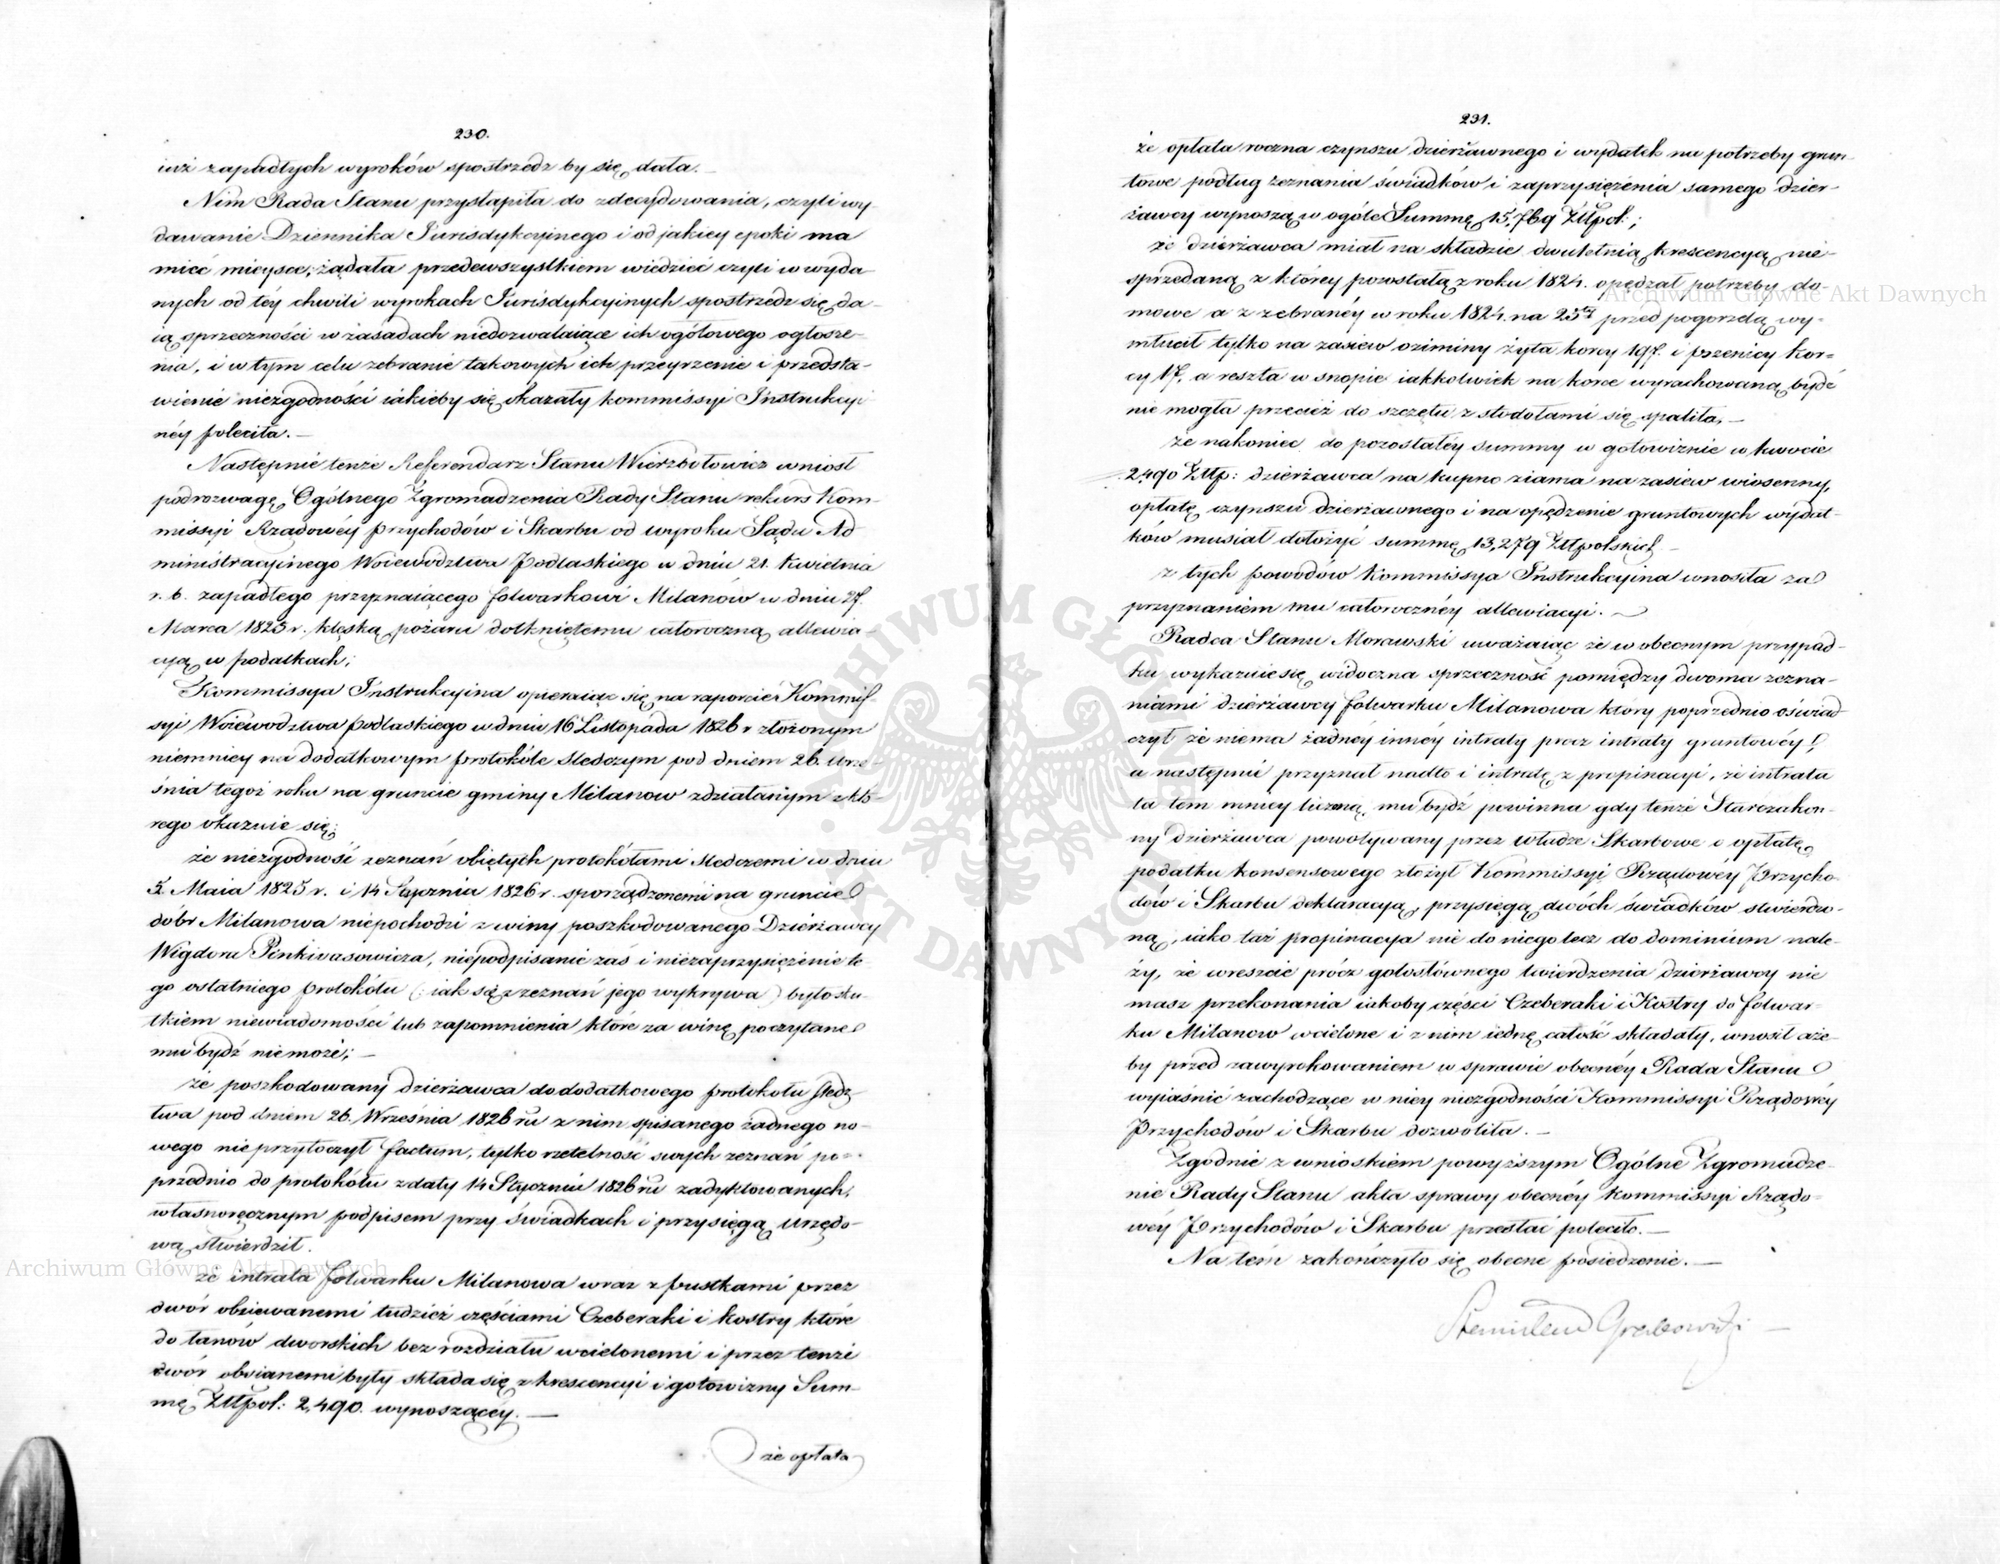 230.
iuż zapadłych wyroków spostrzedz by się data. —
Nim Rada Stanu przystąpiła do zdecydowania, czyli wy-
dawanie Dziennika Jurisdykcyinego i od jakiey epoki ma
mieć mieysce; żądała przedewszystkiem wiedzieć czyli w wyda-
nych od téy chwili wyrokach Jurisdykcyinych spostrzedz się da-
ią sprzeczności w zasadach niedozwalaiące ich ogółowego ogłosze-
nia, i w tym celu zebranie takowych ich przeyrzenie i przedsta-
wienie niezgodności iakieby się okazały Kommissyi Instrukcyi
néy poleciła. —
Następnie tenże Referendarz Stanu Wierzbołowicz wniosł
pod rozwagę Ogólnego Zgromadzenia Rady Stanu rekurs Kom-
missyi Rządowéy Przychodów i Skarbu od wyroku Sądu Ad
ministracyinego Woiewództwa Podlaskiego w dniu 21. Kwietnia
r. b. zapadłego przyznaiącego folwarkowi Milanów w dniu 27.
Marca 1825 r. klęską pożaru dotkniętemu całoroczną allewia-
cyą w podatkach;
Kommissya Instrukcyina opieraiąc się na raporcie Kommis-
syi Woiewództwa Podlaskiego w dniu 16 Listopada 1826 r złożonym
niemniey na dodatkowym protokóle śledczym pod dniem 26. Wrze-
śnia tegoż roku na gruncie gminy Milanow zdziałanym z któ-
rego okazuie się;
że niezgodność zeznań obiętych protokółami śledczemi w dniu
5. Maia 1825 r. i 14 Stycznia 1826 r. sporządzonemi na gruncie
dóbr Milanowa niepochodzi z winy poszkodowanego Dzierżawcy
Wigdora Pinkwasowicza, niepodpisanie zaś i niezaprzysiężenie te-
go ostatniego protokółu (: iak się z zeznań jego wykrywa ) było sku-
tkiem niewiadomości lub zapomnienia które za winę poczytane
mu bydź niemoże; —
że poszkodowany dzierżawca do dodatkowego protokółu śledz
twa pod dniem 26. Września 1826 ru z nim spisanego żadnego no-
wego nie przytoczył factum, tylko rzetelność swych zeznań po-
przednio do protokółu z daty 14 Stycznia 1826 ru zadyktowanych,
własnoręcznym podpisem przy świadkach i przysięgą urzędo-
wą stwierdził.
że intrata folwarku Milanowa wraz z pustkami przez
dwór obsiewanemi tudzież częściami Czeberaki i Kostry które
do łanów dworskich bez rozdziału wcielonemi i przez tenże
dwór obsianemi były składa się z krescencyi i gotowizny Sum-
mę Złtpol: 2,490. wynoszącey. —
że opłata
231.
że opłata roczna czynszu dzierżawnego i wydatek na potrzeby grun-
towe podług zeznania świadków i zaprzysiężenia samego dzier-
żawcy wynoszą w ogóle Summę 15,769 Złtpol.;
że dzierżawca miał na składzie dwuletnią krescencyą nie-
sprzedaną z którey pozostałą z roku 1824. opędzał potrzeby do-
mowe a z zebranéy w roku 1824. na 25ty przed pogorzelą wy-
młócił tylko na zasiew oziminy żyta korcy 197. i pszenicy kor-
cy 17, a reszta w snopie iakkolwiek na korce wyrachowaną bydź
nie mogła przecież do szczętu z stodołami się spaliła, —
że nakoniec do pozostałéy summy w gotowiznie w kwocie
2,490 Złtp: dzierżawca na kupno ziarna na zasiew wiosenny,
opłatę czynszu dzierżawnego i na opędzenie gruntowych wydat-
ków musiał dołożyć summę 13,279 Złtpolskich —
z tych powodów Kommissya Instrukcyina wnosiła za
przyznaniem mu całorocznéy allewiacyi. —
Radca Stanu Morawski uważaiąc że w obecnym przypad-
ku wykazuie się widoczna sprzeczność pomiędzy dwoma zezna-
niami dzierżawcy folwarku Milanowa który poprzednio oświad
czył że niema żadnéy innéy intraty prócz intraty gruntowéy,
a następnie przyznał nadto i intratę z propinacyi, że intrata
ta tem mniey liczoną mu bydź powinna gdy tenże Starozakon-
ny dzierżawca powoływany przez Władze Skarbowe o opłatę
podatku konsensowego złożył Kommissyi Rządowéy Przycho-
dów i Skarbu deklaracyą przysięgą dwóch świadków stwierdzo-
ną, iako taż propinacya nie do niego lecz do dominium nale-
ży, że wreszcie prócz gołosłównego twierdzenia dzierżawcy nie
masz przekonania iakoby części Czeberaki i Kostry do folwar-
ku Milanow wcielone i z nim iednę całość składały, wnosił aże-
by przed zawyrokowaniem w sprawie obecnéy Rada Stanu
wyiaśnić zachodzące w niey niezgodności Kommissyi Rządowéy
Przychodów i Skarbu dozwoliła. —
Zgodnie z wnioskiem powyższym Ogólne Zgromadze-
nie Rady Stanu akta sprawy obecnéy Kommissyi Rządo-
wéy Przychodów i Skarbu przesłać poleciło. —
Na tém zakończyło się obecne posiedzenie. —
Stanisław Grabowski
Archiwum Główne Akt Dawnych
Archiwum Główne Akt Dawnych
ARCHIWUM GŁÓWNE AKT DAWNYCH